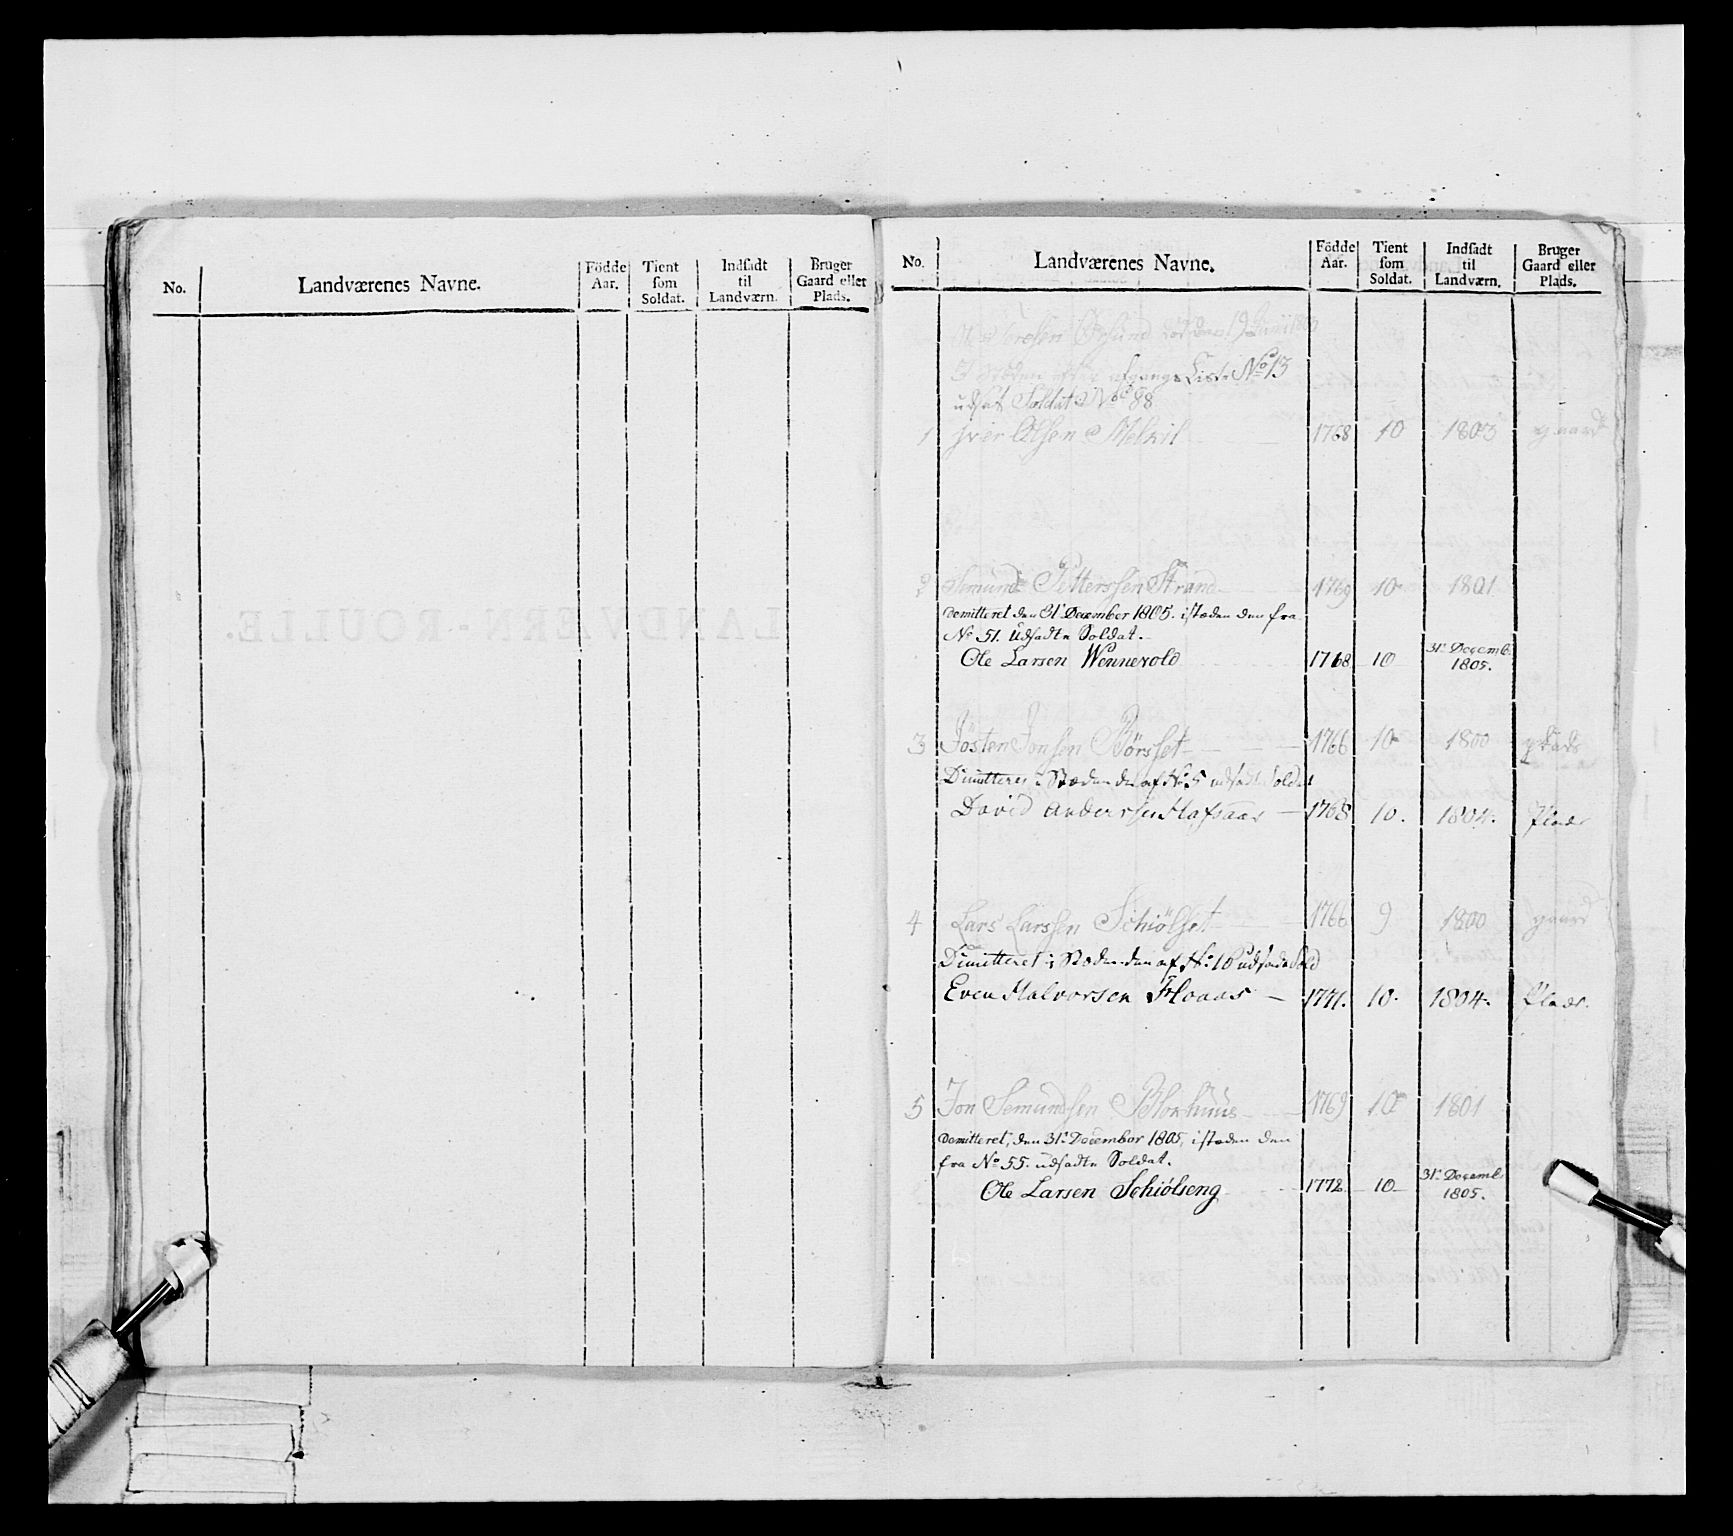 No.
Landværenes Navne.
Födde Aar.
Tient som Soldat.
Indsadt til Landværn.
Bruger Gaard eller Plads.
LANDVÆRN-ROULLE.
No.
Landværenes Navne.
Födde Aar.
Tient som Soldat.
Indsadt til Landværn.
Bruger Gaard eller Plads.
afgangs Liste No 13
udsat Soldat No 88
1 Iver Olsen 1768 10 1803 gaard
2 Semund Petterssen Strand 1769 10 1801
Demitteret den 31t December 1805. istæden den fra
No 51. Udsadte Soldat.
Ole Larsen Wennevold 1768 10 31t Decemb. 1805.
3 Josten Jonsen Börsset 1766 10 1800 plads
Dimitteres i Stæden den af No 5 udsadte Soldat
David Andersen 1768 10. 1804. Plads
4 Lars Larssen Schiölset 1766 9 1800 gaard
Dimitteret i Stæden den af No 10 udsadte Sold
Even Halvorsen Hoaas 1771. 10. 1804. Plads.
5 Jon Semundsen 1769 10 1801
Demitteret, den 31t December 1805, istæden den
fra No 55. udsadte Soldat.
Ole Larsen Schiölseng 1772 10 31t Decemb. 1805.